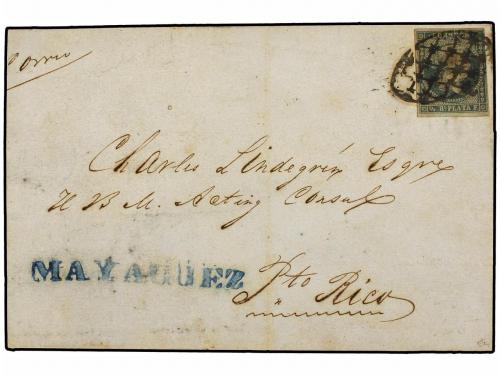 Correo
CORREOS
½ Rl. PLATA F.
Charles Lindegrin Esqre
H B M. Acting Consul
MAYAGUEZ
Pto Rico